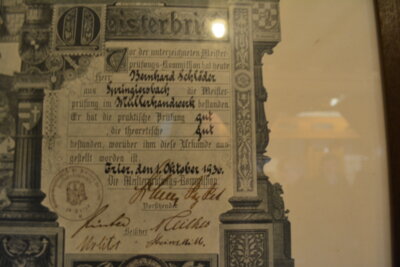 Meisterbrief
Vor der unterzeichneten Meister
prüfungs-Kommission hat heute
Herr Bernhard Schlöder
aus Springiersbach die Meister
prüfung im Müllerhandwerk bestanden.
Er hat die praktische Prüfung gut
die theoretische gut
bestanden, worüber ihm diese Urkunde aus
gestellt worden ist.
Trier, den 1. Oktober 1930.
Die Meisterprüfungs-Kommission
Vorsitzender
Beisitzer